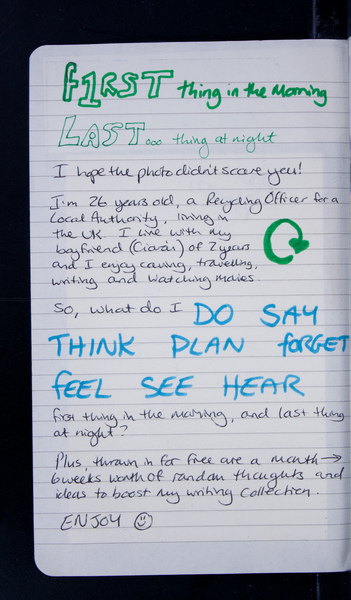 FIRST thing in the morning
LAST... thing at night
I hope the photo didn't scare you!
I'm 26 years old, a Recycling Officer for a
Local Authority, living in
the UK. I live with my
boyfriend (Ciarán) of 2 years
and I enjoy caving, travelling,
writing and watching movies.
So, what do I DO SAY
THINK PLAN FORGET
FEEL SEE HEAR
first thing in the morning, and last thing
at night?
Plus, thrown in for free are a month →
6 weeks worth of random thoughts and
ideas to boost my writing collection.
ENJOY ☺